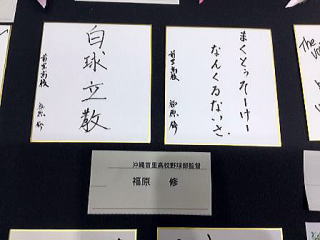 白球立教
首里高校 福原 修
まくとぅそーけー
なんくるないさ
首里高校 福原 修
The
沖縄首里高校野球部監督
福原 修